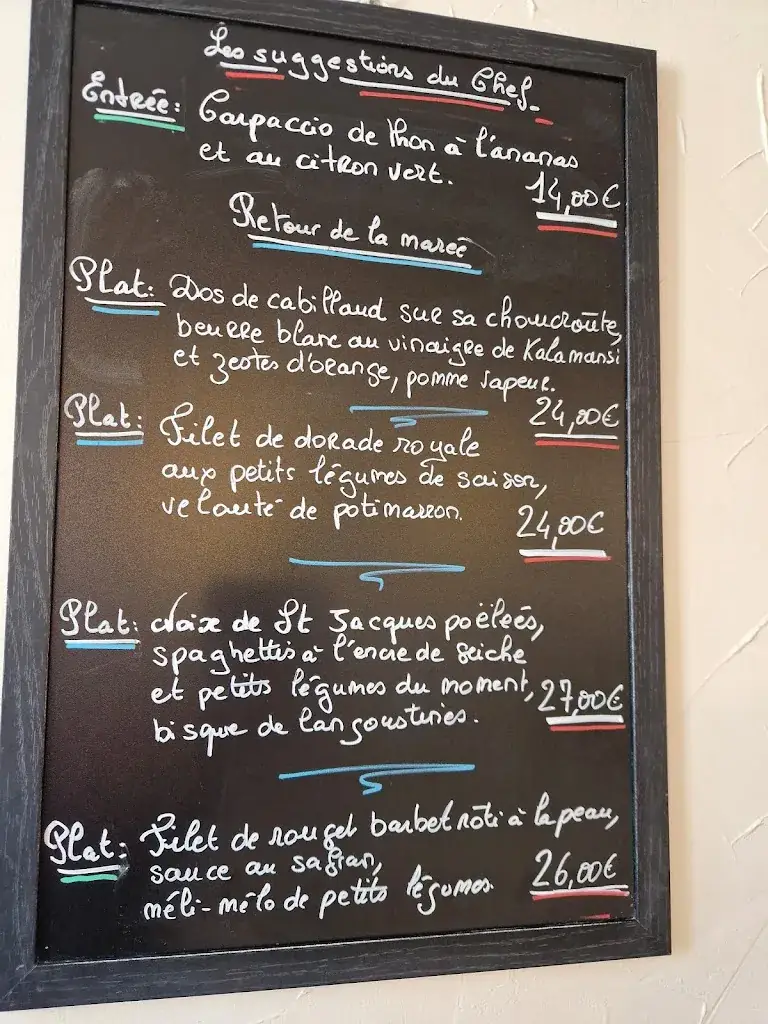 Les suggestions du Chef.
Entrée: Carpaccio de thon à l'ananas
et au citron vert.
14,00€
Retour de la marée
Plat: Dos de cabillaud sur sa choucroûte,
beurre blanc au vinaigre de Kalamansi
et zestes d'orange, pomme vapeur.
24,00€
Plat: Filet de dorade royale
aux petits légumes de saison,
velouté de potimarron.
24,00€
Plat: Noix de St Jacques poëleés,
spaghettis à l'encre de seiche
et petits légumes du moment,
27,00€
bisque de langoustines.
Plat: Filet de rouget barbet rôti à la peau,
sauce au safran,
26,00€
méli-mélo de petits légumes.